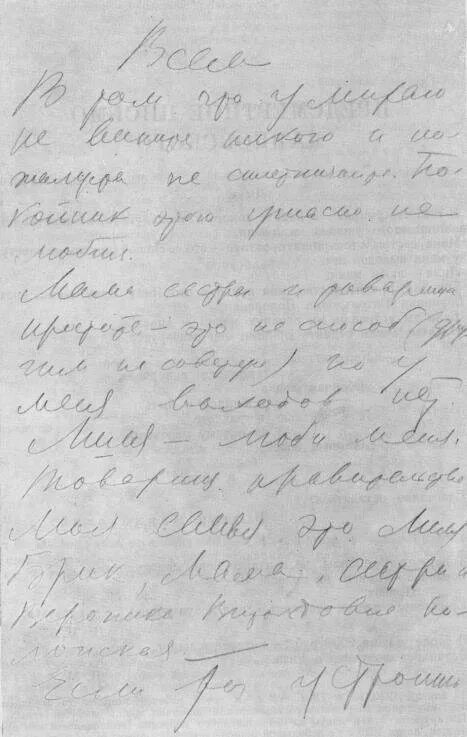 Всем
В том что умираю
не вините никого и по-
жалуйста не сплетничайте. По-
койник этого ужасно не
любил.
Мама сестры и товарищи
простите – это не способ (дру-
гим не советую) но у
меня выходов нет.
Лиля – люби меня.
Товарищ правительство
моя семья это Лиля
Брик, мама, сестры и
Вероника Витольдовна По-
лонская.
Если ты устроишь